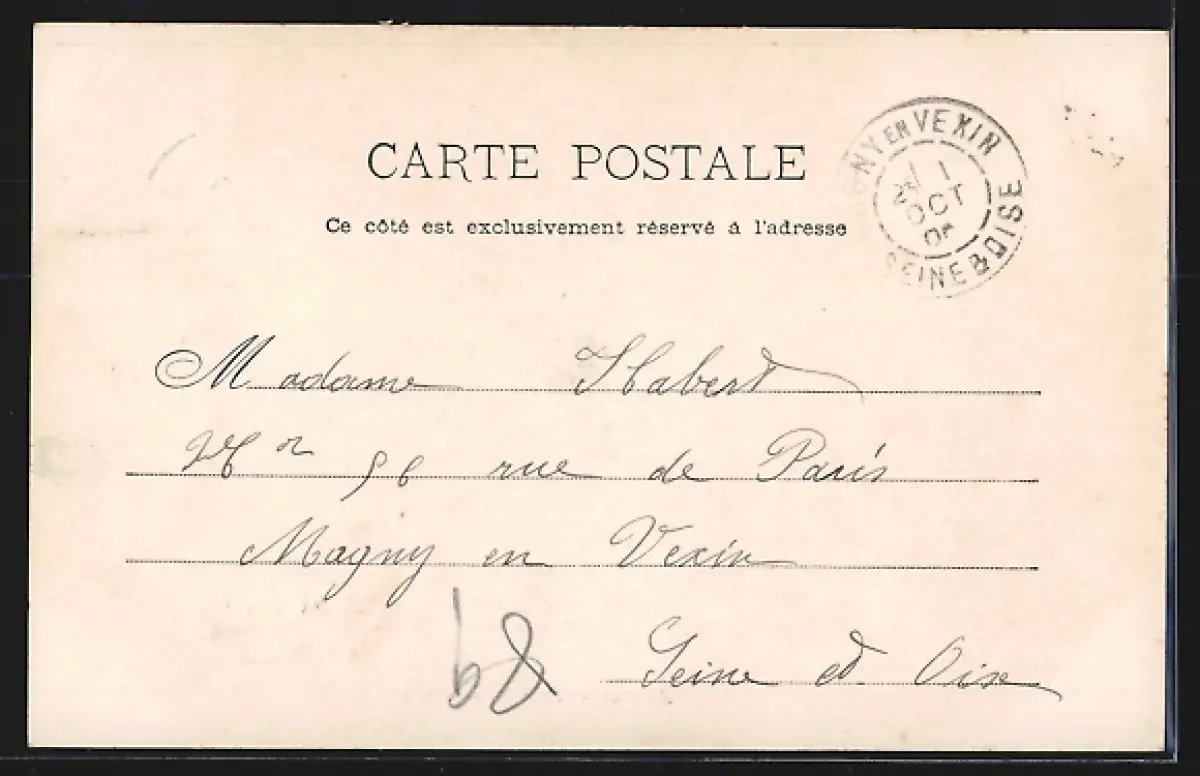 CARTE POSTALE
Ce côté est exclusivement réservé à l'adresse
NY EN VEXIN
11
OCT
05
SEINE & OISE
Madame Habert
56 rue de Paris
Magny en Vexin
Seine et Oise
68